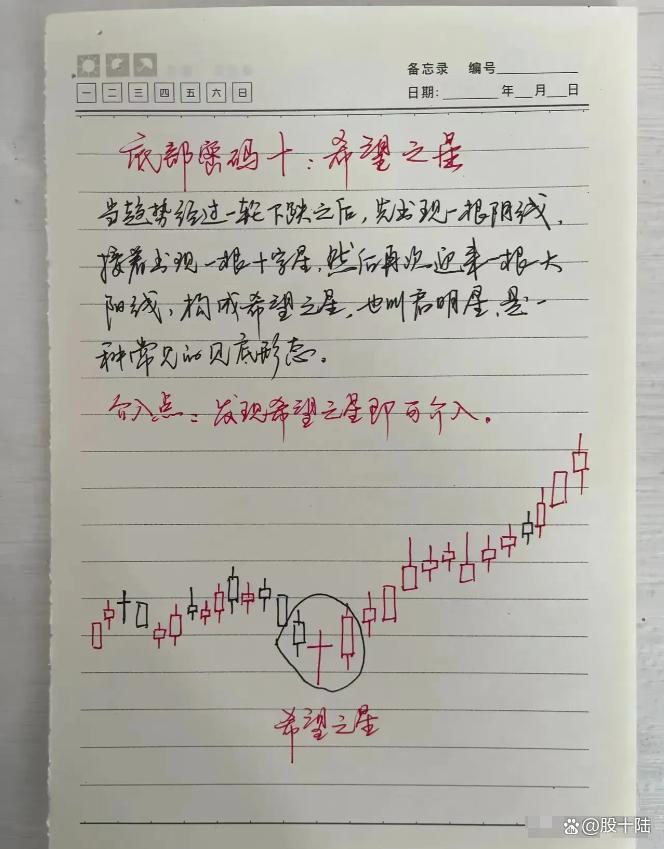 备忘录 编号
一 二 三 四 五 六 日
日期: 年 月 日
底部密码十:希望之星
当趋势经过一轮下跌之后,先出现一根阴线,
接着出现一根十字星,然后再次迎来一根大
阳线,构成希望之星,也叫启明星,是一
种常见的见底形态。
介入点:发现希望之星即可介入。
希望之星
百度 @股十陆